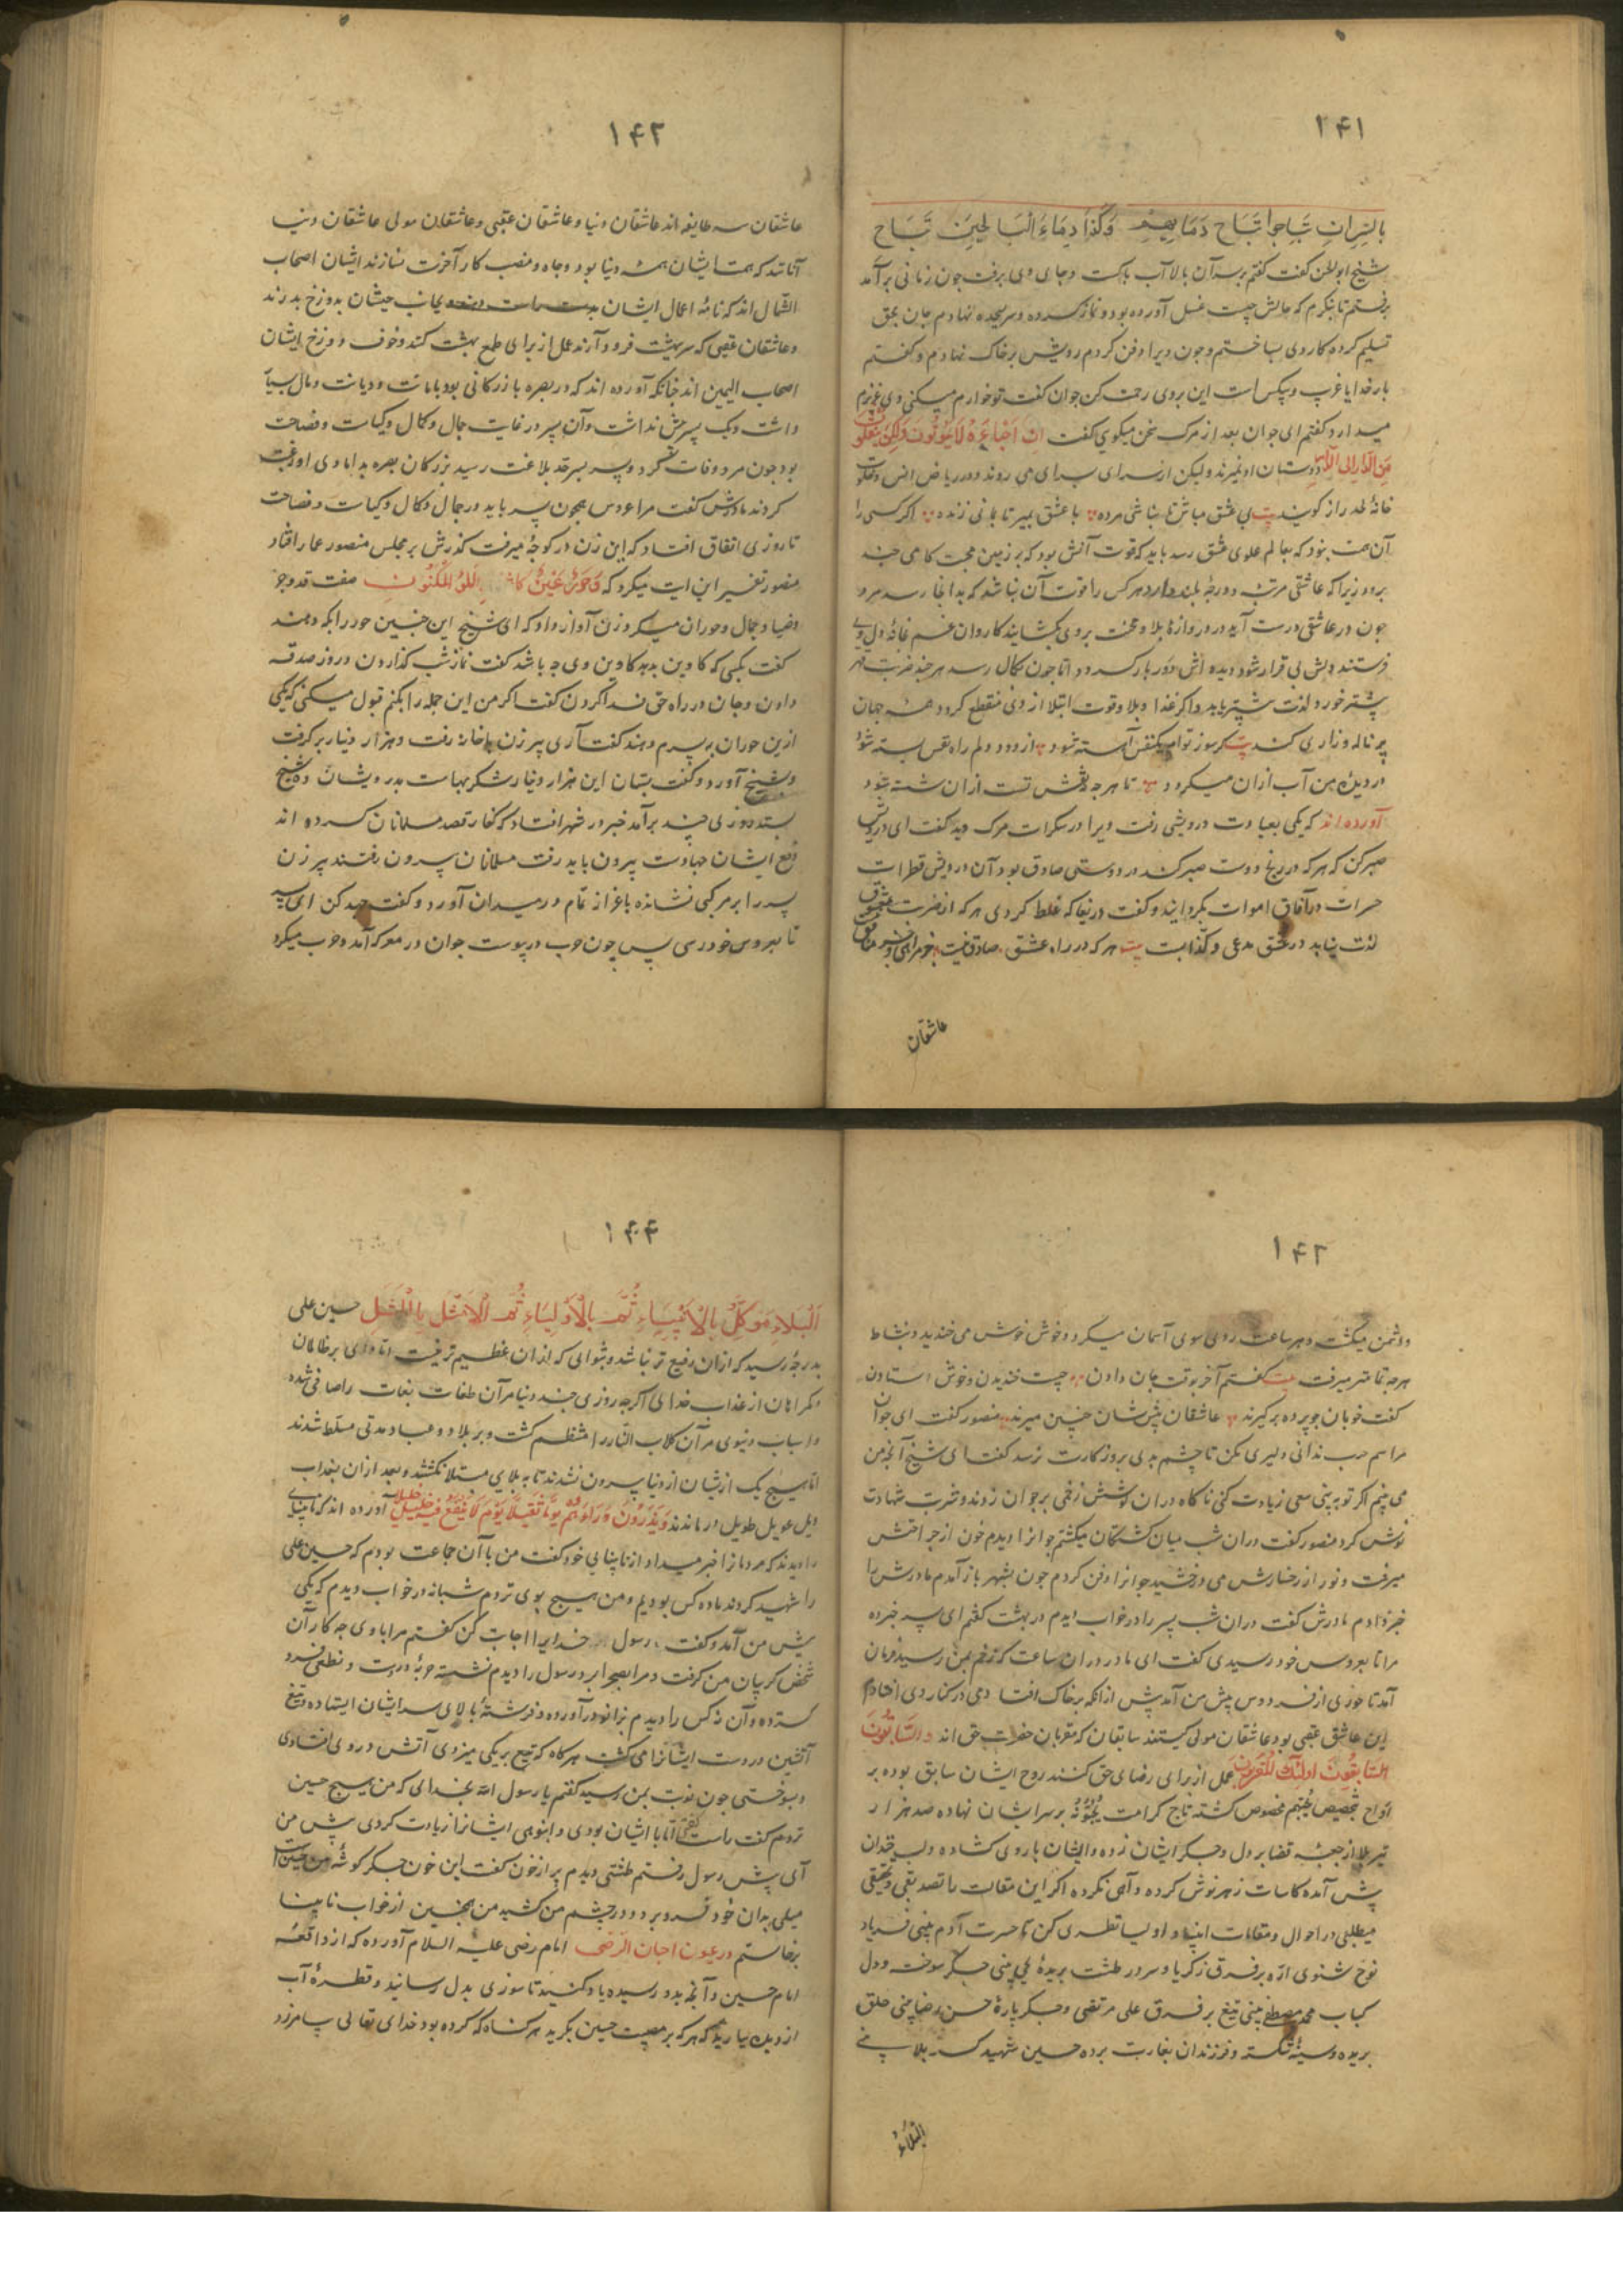 ۱۴۱
بالسر ان تباحوا تباح دماءهم وكذا دماء البالحين تباح
شیخ ابوالحن کفت کفتم برسر آن بالا آب پاکست و جای وی برفت جون زمانی برآمد
برفتم تا بنکرم که حالش چیست غسل آورده بود و نماز کرده و سر بسجده نهاده جان بحق
تسلیم کرده کار وی بساختم و چون ویرا دفن کردم رویش بر خاک نهادم و کفتم
بار خدایا غریب و بیکس است این بروی رحمت کن جوان کفت تو خوارم میکنی و وی عزیزم
میدارد کفتم ای جوان بعد از مرک سخن میکویی کفت ان احباءه لا يموتون ولكن ينقلون
من الدار الی الدار دوستان او نمیرند ولیکن از سرای بسرای می روند و در ریاض انس و خلوت
خانهٔ لحد راز کویند بیت بی عشق مباش تا نباشی مرده با عشق بمیر تا بمانی زنده اکر کسی را
آن همت بنود که بعالم علوی عشق رسد باید که قوت آنش بود که بر زمین محبت کامی چند
برود زیرا که عاشقی مرتبه و درجهٔ بلند دارد هر کس را قوت آن نباشد که بدانجا رسد مرد
جون در عاشقی درست آید در دروازهٔ بلا و محنت بروی بکشایند کاروان غم بخانهٔ دل وی
فرستند دلش بی قرار شود دیده اش دربار کردد اما جون بکمال رسد هر چند ضربت قهر
پشتر خورد لذت پشتر یابد و اکر غذا و بلا و قوت ابتلا از وی منقطع کردد همه جهان
پر ناله و زاری کند بیت کر سوز توام یکنفس آهسته شود از دود دلم راه نفس بسته شود
در دیدهٔ من آب ازان میکردد تا هر چه نه نقش تست ازان شسته شود
آورده اند که یکی بعیادت درویشی رفت ویرا در سکرات مرک دید کفت ای درویش
صبر کن که هر که در رنج دوست صبر کند در دوستی صادق بود آن درویش قطرات
حسرات در آفاق اموات بکردانید و کفت دریغا که غلط کردی هر که از ضربت معشوق
لذت نیابد در عشق مدعی و کذابست بیت هر که در راه عشق صادق نیست
عاشقان
۱۴۲
عاشقان سه طایفه اند عاشقان دنیا و عاشقان عقبی و عاشقان مولی عاشقان دنیا
آنانند که همت ایشان همه دنیا بود و جاه و منصب کار آخرت نسازند ایشان اصحاب
الشمال اند که نامهٔ اعمال ایشان بدست چپ ایشان بدوزخ بدرند
و عاشقان عقبی که سر بهشت فرود آرند عمل از برای طمع بهشت کنند و خوف دوزخ ایشان
اصحاب الیمین اند چنانکه آورده اند که در بصره بازرکانی بود با امانت و دیانت و مال بسیار
داشت و یک پسر بیش نداشت و آن پسر در غایت جمال و کمال و کیاست و فصاحت
بود جون مرد وفات کرد و پسر بسر حد بلاغت رسید بزرکان بصره بدامادی او رغبت
کردند مادرش کفت مرا عروس همچون پسر باید در جمال و کمال و کیاست و فصاحت
تا روزی اتفاق افتاد که این زن در کوچهٔ میرفت کذرش بر مجلس منصور عمار افتاد
منصور تفسیر این ایت میکرد که وَحُورٌ عِينٌ كامثال اللؤلؤ المكنون صفت قد و جود
و ضیا و جمال و حوران میکرد زن آواز داد که ای شیخ این جنین حور را بکه دهند
کفت بکسی که کاوین بدهد کاوین وی چه باشد کفت نماز شب کذاردن و روز صدقه
دادن و جان در راه حق فدا کردن کفت اکر من این جمله را بکنم قبول میکنی که یکی
ازین حوران به پسرم دهند کفت آری پیر زن باخانه رفت و هزار دینار برکرفت
و بشیخ آورد و کفت بستان این هزار دینار شکر بهاست بدرویشان ده شیخ
بستد روزی چند برآمد خبر در شهر افتاد که کفار قصد مسلمانان کرده اند
دفع ایشان جهادست بیرون باید رفت مسلمانان بیرون رفتند پیر زن
پسر را بر مرکبی نشانده باعزاز تمام در میدان آورد و کفت جهد کن ای پسر
تا بعروس خود رسی پس چون حرب درپیوست جوان در معرکه آمد و حرب میکرد
۱۴۳
و دشمن میکشت و هر ساعت روی سوی آسمان میکرد و خوش خوش می خندید و نشاط
هر چه تمامتر میرفت بیت کفتم آخر بوقت جان دادن چیست خندیدن و خوش استادن
کفت خوبان چو پرده بر کیرند عاشقان پیش شان چنین میرند منصور کفت ای جوان
مراسم حرب ندانی دلیری مکن تا چشم بدی بروز کارت نرسد کفت ای شیخ آنچه من
می بینم اکر تو به بینی سعی زیادت کنی ناکاه دران کوشش زخمی بر جوان زدند و شربت شهادت
نوش کرد منصور کفت دران شب میان کشتکان میکشتم جوانرا دیدم خون از جراحتش
میرفت و نور از رخسارش می درخشید جوانرا دفن کردم جون بشهر باز آمدم مادرش را
خبر دادم مادرش کفت دران شب پسر را در خواب دیدم در بهشت کفتم ای پسر خبر ده
مرا تا بعروس خود رسیدی کفت ای مادر دران ساعت که زخم بمن رسید فرمان
آمد تا حوری از فردوس پیش من آمد پیش ازانکه بر خاک افتادمی در کنار وی افتادم
این عاشق عقبی بود عاشقان مولی کیستند سابقان که مقربان حضرت حق اند والسابقون
السابقون اولئك المقربون عمل از برای رضای حق کنند روح ایشان سابق بوده بر
ارواح بتخصیص یحبهم مخصوص کشته تاج کرامت یحبونه بر سر ایشان نهاده صد هزار
تیر بلا از جعبهٔ قضا بر دل و جکر ایشان زده و ایشان با روی کشاده و لب خندان
پیش آمده کاسات زهر نوش کرده و آهی نکرده اکر این مقالت را تصدیقی و تحقیقی
میطلبی در احوال و مقامات انبیا و اولیا نظری کن تا حسرت آدم بینی فریاد
نوح شنوی ارّه بر فرق زکریا و سر در طشت بریدهٔ یحیی بینی جکر سوخته و دل
کباب محمد مصطفی بینی تیغ بر فرق علی مرتضی و جکر پارهٔ حسن رضا بینی حلق
بریده و سینهٔ شکسته و فرزندان بغارت برده حسین شهید کربلا بینی
البلاء
۱۴۴
اَلْبَلاءُ مُوَكَّلٌ بِالْاَنْبِيَاءِ ثُمَّ بِالْاَوْلِيَاءِ ثُمَّ الْاَمْثَلِ بِالْاَمْثَلِ حسین علی
بدرجهٔ رسید که ازان رفیع تر نباشد و بثوابی که ازان عظیم تر نیست اما وای بر ظالمان
و کمراهان از عذاب خدای اکر چه روزی چند دنیا مر آن طغات بغات را صافی شده
و اسباب دنیوی مر آن کلاب النار را منتظم کشت و بر بلاد و عباد مدتی مسلط شدند
اما هیچ یک ازیشان از دنیا بیرون نشدند تا به بلایی مبتلا نکشتند و بعد ازان بعذاب
ویل عویل طویل درماندند وَيَذَرُونَ وَرَاءَهُمْ يَوْمًا ثَقِيلًا يَوْمَ لَا يَنْفَعُ فيه خليل خليلا آورده اند که نابینایی
را دیدند که مردمانرا خبر میداد از نابینایی خود کفت من با آن جماعت بودم که حسین علی
را شهید کردند ما ده کس بودیم و من هیچ بوی نزدم شبانه در خواب دیدم که یکی
پیش من آمد و کفت رسول خدایرا اجابت کن کفتم مرا با وی چه کار آن
شخص کریبان من کرفت و مرا بصحرا برد رسول را دیدم نشسته حربهٔ در دست و نطعی فرو
کسترده و آن نه کس را دیدم بزانو درآورده و فرشتهٔ بالای سر ایشان ایستاده و تیغ
آتشین در دست ایشانرا می کشت هر کاه که تیغ بر یکی میزدی آتش در وی افتادی
و بسوختی جون نوبت بمن رسید کفتم یا رسول الله بخدای که من هیچ حسین
نزدم کفت راست کفتی اما با ایشان بودی و انبوهی ایشانرا زیادت کردی پیش من
آی پیش رسول رفتم طشتی دیدم پر از خون کفت این خون جکر کوشهٔ من حسین است
میلی بدان خون فرو برد و در چشم من کشید من همچنین از خواب نابینا
برخاستم در عیون اخبار الرضی امام رضی علیه السلام آورده که از واقعهٔ
امام حسین و آنچه بدو رسیده یاد کنید تا سوزی بدل رسانید و قطرهٔ آب
از دیده بیارید که هر که بر مصیبت حسین بکرید هر کناه که کرده بود خدای تعالی بیامرزد